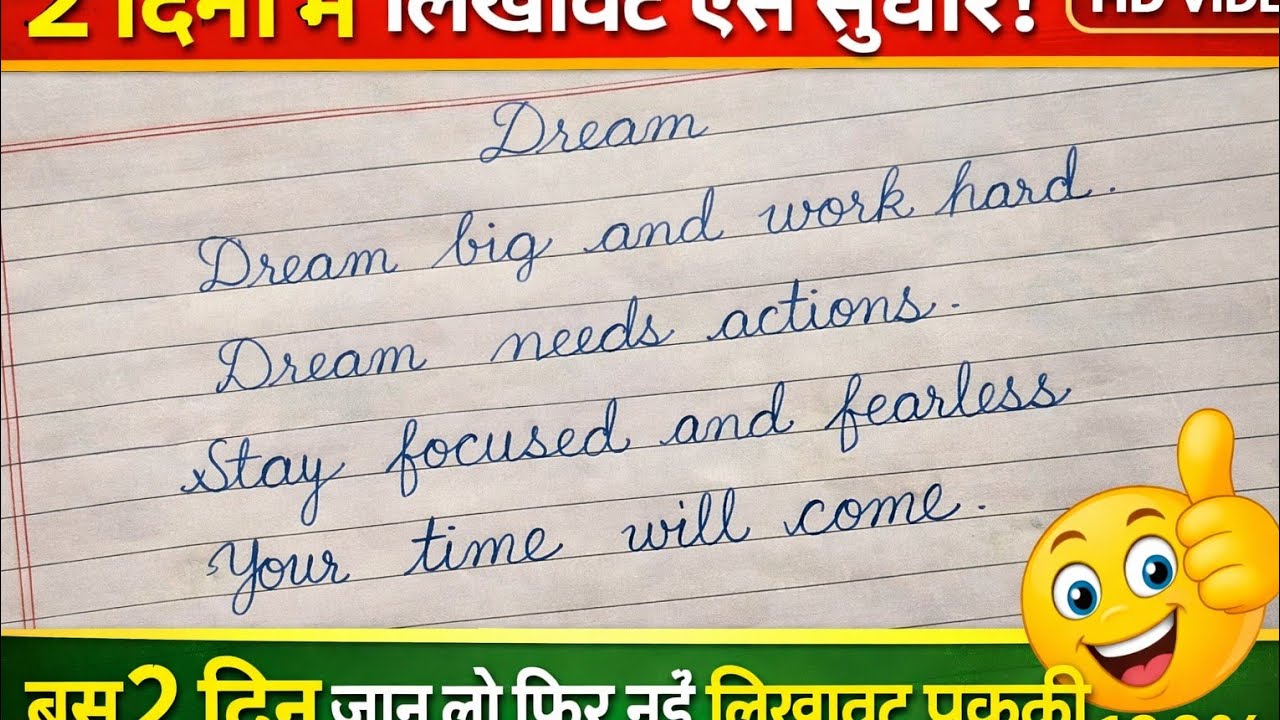 2 दिनों में लिखावट ऐसे सुधारें! HD VIDE
Dream
Dream big and work hard.
Dream needs actions.
Stay focused and fearless
Your time will come.
बस 2 दिन जान लो फिर नई लिखावट पक्की